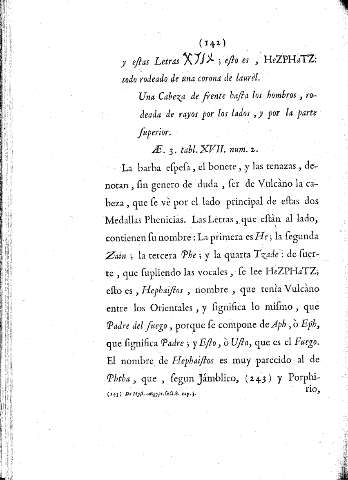 (142)
y eſtas Letras ; eſto es, HeZPHaTZ:
todo rodeado de una corona de laurèl.
Una Cabeza de frente haſta los hombros, ro-
deada de rayos por los lados, y por la parte
ſuperior.
Æ. 3. tabl. XVII. num. 2.
La barba eſpeſa, el bonete, y las tenazas, de-
notan, ſin genero de duda, ſer de Vulcàno la ca-
beza, que ſe vè por el lado principal de eſtas dos
Medallas Phenicias. Las Letras, que eſtàn al lado,
contienen ſu nombre: La primera es He; la ſegunda
Zain; la tercera Phe; y la quarta Tzade: de ſuer-
te, que ſupliendo las vocales, ſe lee HeZPHaTZ;
eſto es, Hephaiſtos, nombre, que tenìa Vulcàno
entre los Orientales, y ſignifica lo miſmo, que
Padre del fuego, porque ſe compone de Aph, ò Eph,
que ſignifica Padre; y Eſto, ò Uſta, que es el Fuego.
El nombre de Hephaiſtos es muy parecido al de
Phtha, que, ſegun Jàmblico, (243) y Porphi-
rio,
(243) De Myſt. Ægypt. ſect. 8. cap. 3.